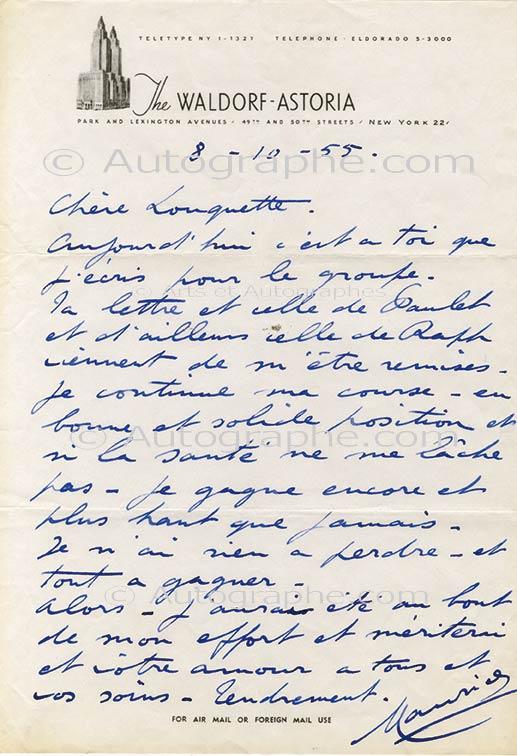 TELETYPE NY 1-1321 TELEPHONE · ELDORADO 5-3000
The WALDORF-ASTORIA
PARK AND LEXINGTON AVENUES / 49TH AND 50TH STREETS / NEW YORK 22/
8 - 10 - 55.
© Autographe.com
Chère Louquette.
Aujourd'hui c'est a toi que
j'écris pour le groupe.
© Arts et Autographes
Ta lettre et celle de Paulet
et d'ailleurs celle de Raph
viennent de m'être remises -
Je continue ma course - en
bonne et solide position et
© Autographe.com
si la santé ne me lâche
pas - je gagne encore et
plus haut que jamais -
Je n'ai rien a perdre - et
tout a gagner -
© Autographe.com
Alors - j'aurais été au bout
de mon effort et mériterai
et votre amour a tous et
vos soins - Tendrement.
Maurice
FOR AIR MAIL OR FOREIGN MAIL USE